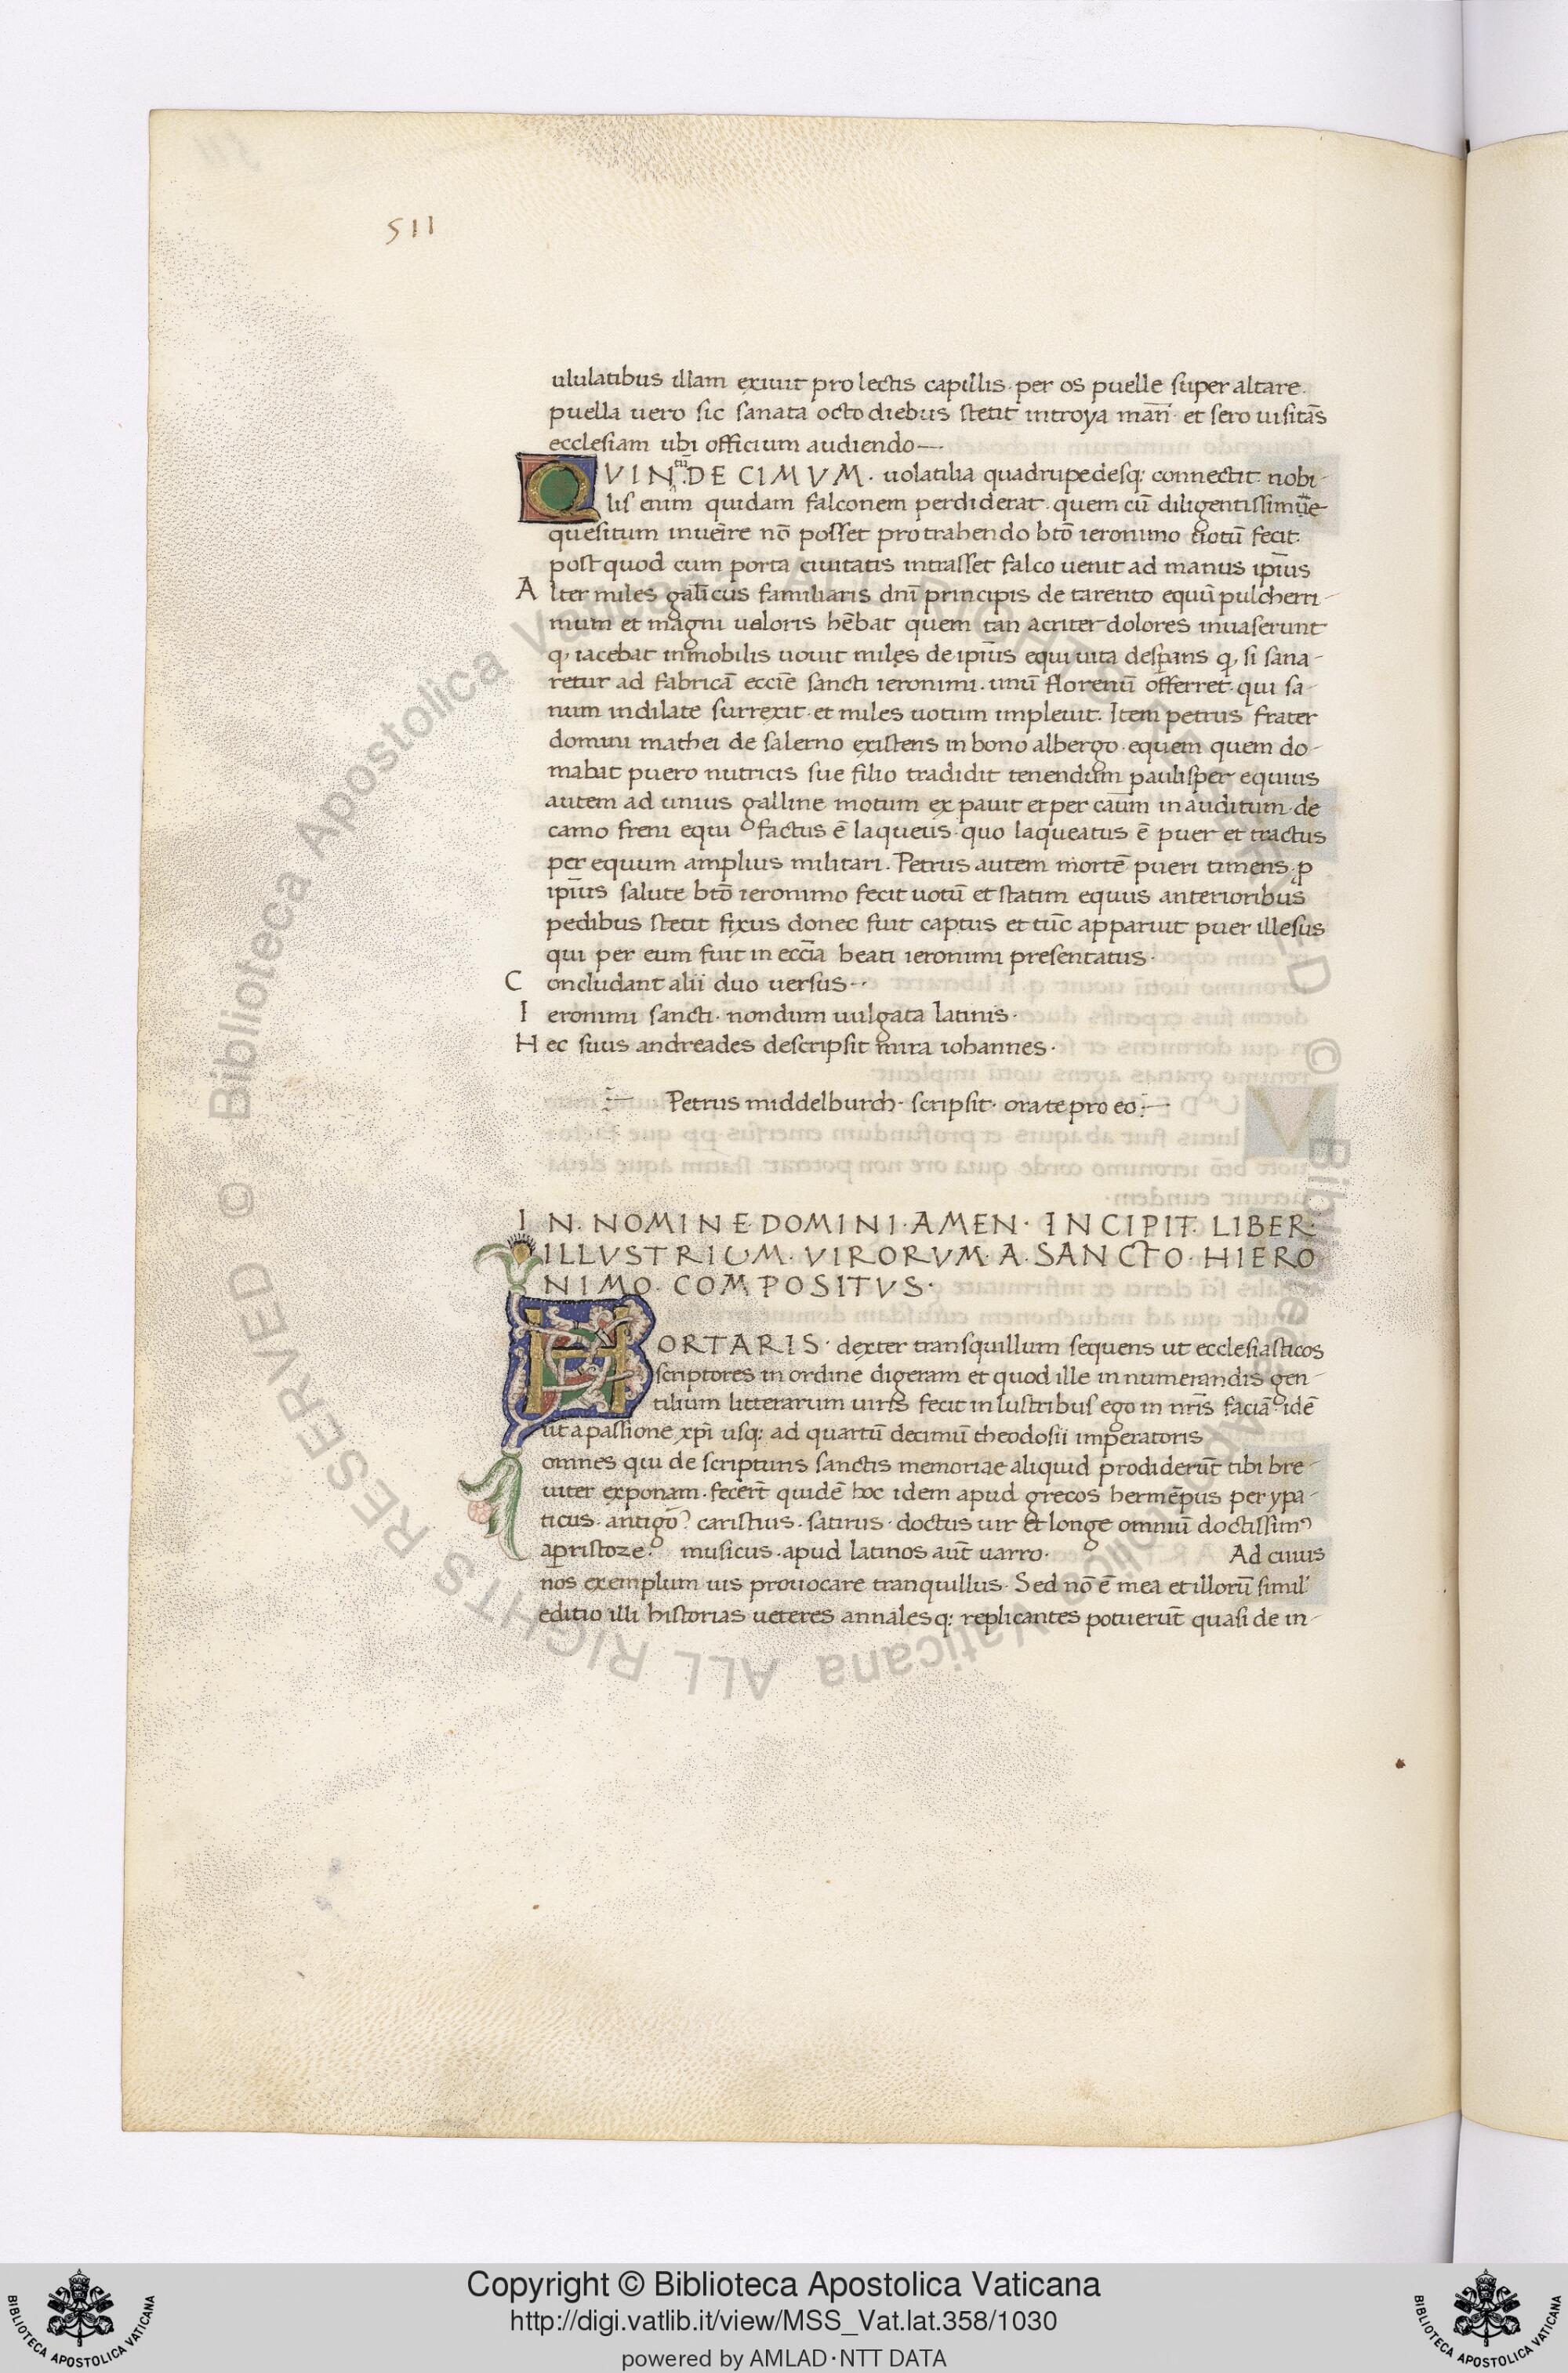 511
ululatibus illam exiuit pro lectis capillis · per os puelle super altare .
puella uero sic sanata octo diebus stetit introya mañ · et sero uisitãs
ecclesiam ubi officium audiendo —·
QVINDECIMVM · uolatilia quadrupedesq: connectit · nobi-
lis enim quidam falconem perdiderat · quem cũ diligentissim
quesitum inueire nõ posset protrahendo btõ ieronimo uotũ fecit·
post quod cum porta ciuitatis intrasset falco uenit ad manus ipĩus
Alter miles galĩcus familiaris dnĩ principis de tarento equũ pulcherri-
mum et magni ualoris hẽbat quem tan acriter dolores inuaserunt
q, iacebat inmobilis uouit miles de ipĩus equi uita desp̱ans q, si sana-
retur ad fabricã eccĩe sancti ieronimi . unũ florenũ offerret · qui sa-
num indilate surrexit · et miles uotum impleuit . Item petrus frater
domini mathei de salerno existens in bono albergo · equem quem do-
mabat puero nutricis sue filio tradidit tenendum paulisper equus
autem ad unius galline motum expauit et per caũm in auditum · de
camo freni equi factus ẽ laqueus · quo laqueatus ẽ puer et tractus
per equum amplius militari . Petrus autem mortẽ pueri timens · p̱
ipĩus salute btõ ieronimo fecit uotũ et statim equus anterioribus
pedibus stetit fixus donec fuit captus et tũc apparuit puer illesus
qui per eum fuit in eccĩa beati ieronimi presentatus ·
Concludant alii duo uersus ··
Ieronimi sancti · nondum uulgata latinis ·
Hec suus andreades descripsit mira iohannes ·
Petrus middelburch · scripsit · orate pro eo :—
IN . NOMINE DOMINI · AMEN · INCIPIT . LIBER ·
ILLVSTRIUM · VIRORVM · A . SANCTO · HIERO
NIMO . COMPOSITVS ·
HORTARIS · dexter transquillum sequens ut ecclesiasticos
scriptores in ordine digeram et quod ille in numerandis gen-
tilium litterarum uiris fecit inlustribus ego in nrĩs faciã idẽ
ut a passione xpĩ usq: ad quartũ decimũ theodosii imperatoris
omnes qui de scripturis sanctis memoriae aliquid prodiderũt tibi bre-
uiter exponam . fecert̃ quidẽ hoc idem apud grecos hermẽpus perypa-
ticus · antigõ⁹ caristius · satirus · doctus uir et longe omniũ doctissim⁹
apristoze⁹ musicus · apud latinos aut̃ uarro · Ad cuius
nos exemplum uis prouocare tranquillus · Sed nõ ẽ mea et illorũ simil'
editio illi historias ueteres annalesq: replicantes potuerũt quasi de in-
© Biblioteca Apostolica Vaticana ALL RIGHTS RESERVED © Biblioteca Apostolica Vaticana ALL RIGHTS RESERVED
Copyright © Biblioteca Apostolica Vaticana
http://digi.vatlib.it/view/MSS_Vat.lat.358/1030
powered by AMLAD·NTT DATA
BIBLIOTECA APOSTOLICA VATICANA
BIBLIOTECA APOSTOLICA VATICANA